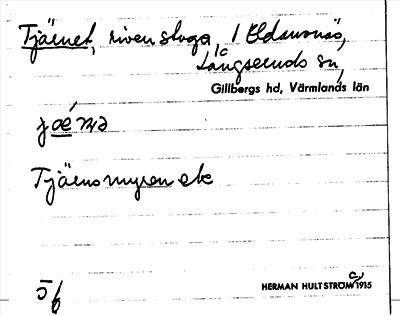 Tjärnet, riven stuga, 1 Eldsmossä,
1c
Långseruds sn,
Gillbergs hd, Värmlands län
Tjärnsmyren etc
5 f
HERMAN HULTSTRÖM 1915